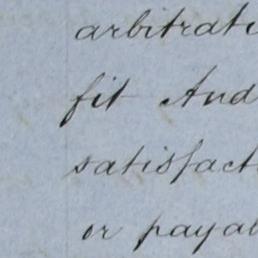 arbitrati
fit And
satisfact
or payab